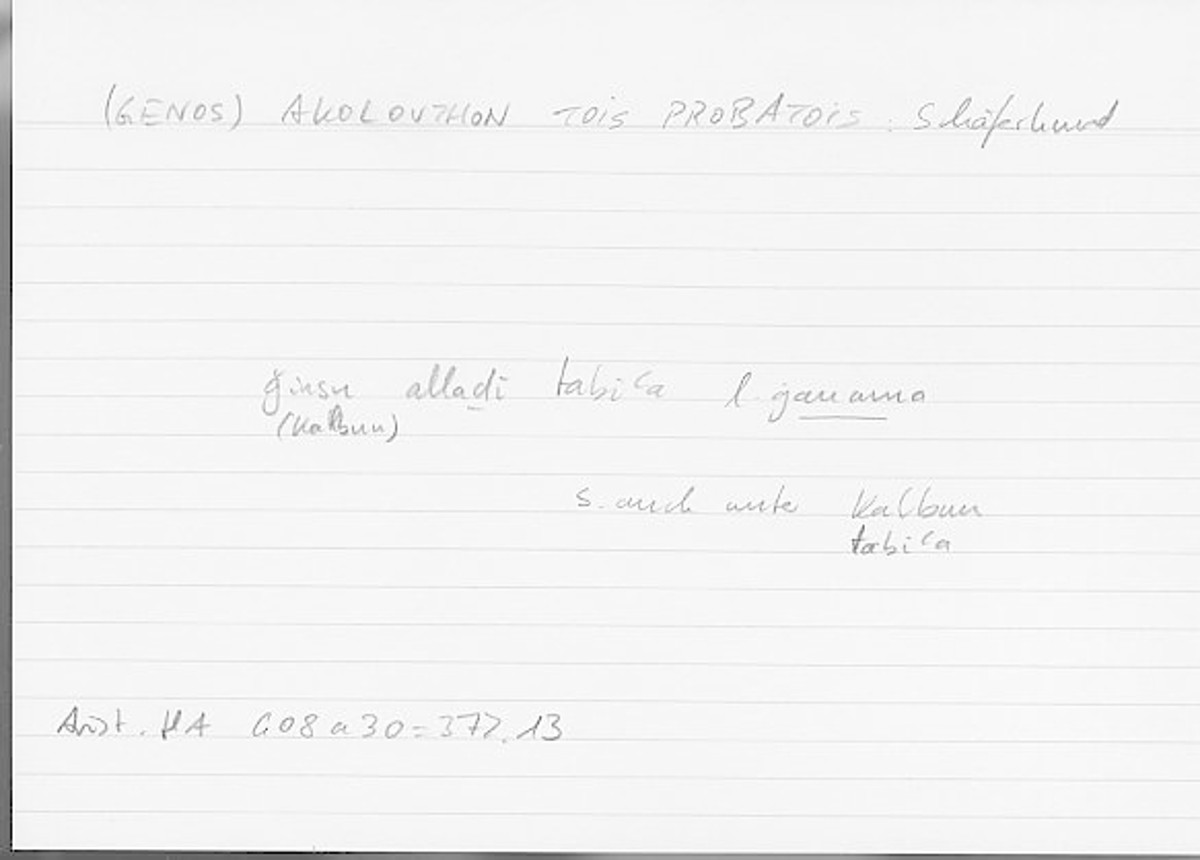 (GENOS) AKOLOUTHON TOIS PROBATOIS : Schäferhund
ǧinsu allaḏī tabiʿa l-ġanama
(Kalbun)
s. auch unter Kalbun
tabiʿa
Arist. HA 608a30 = 377.13